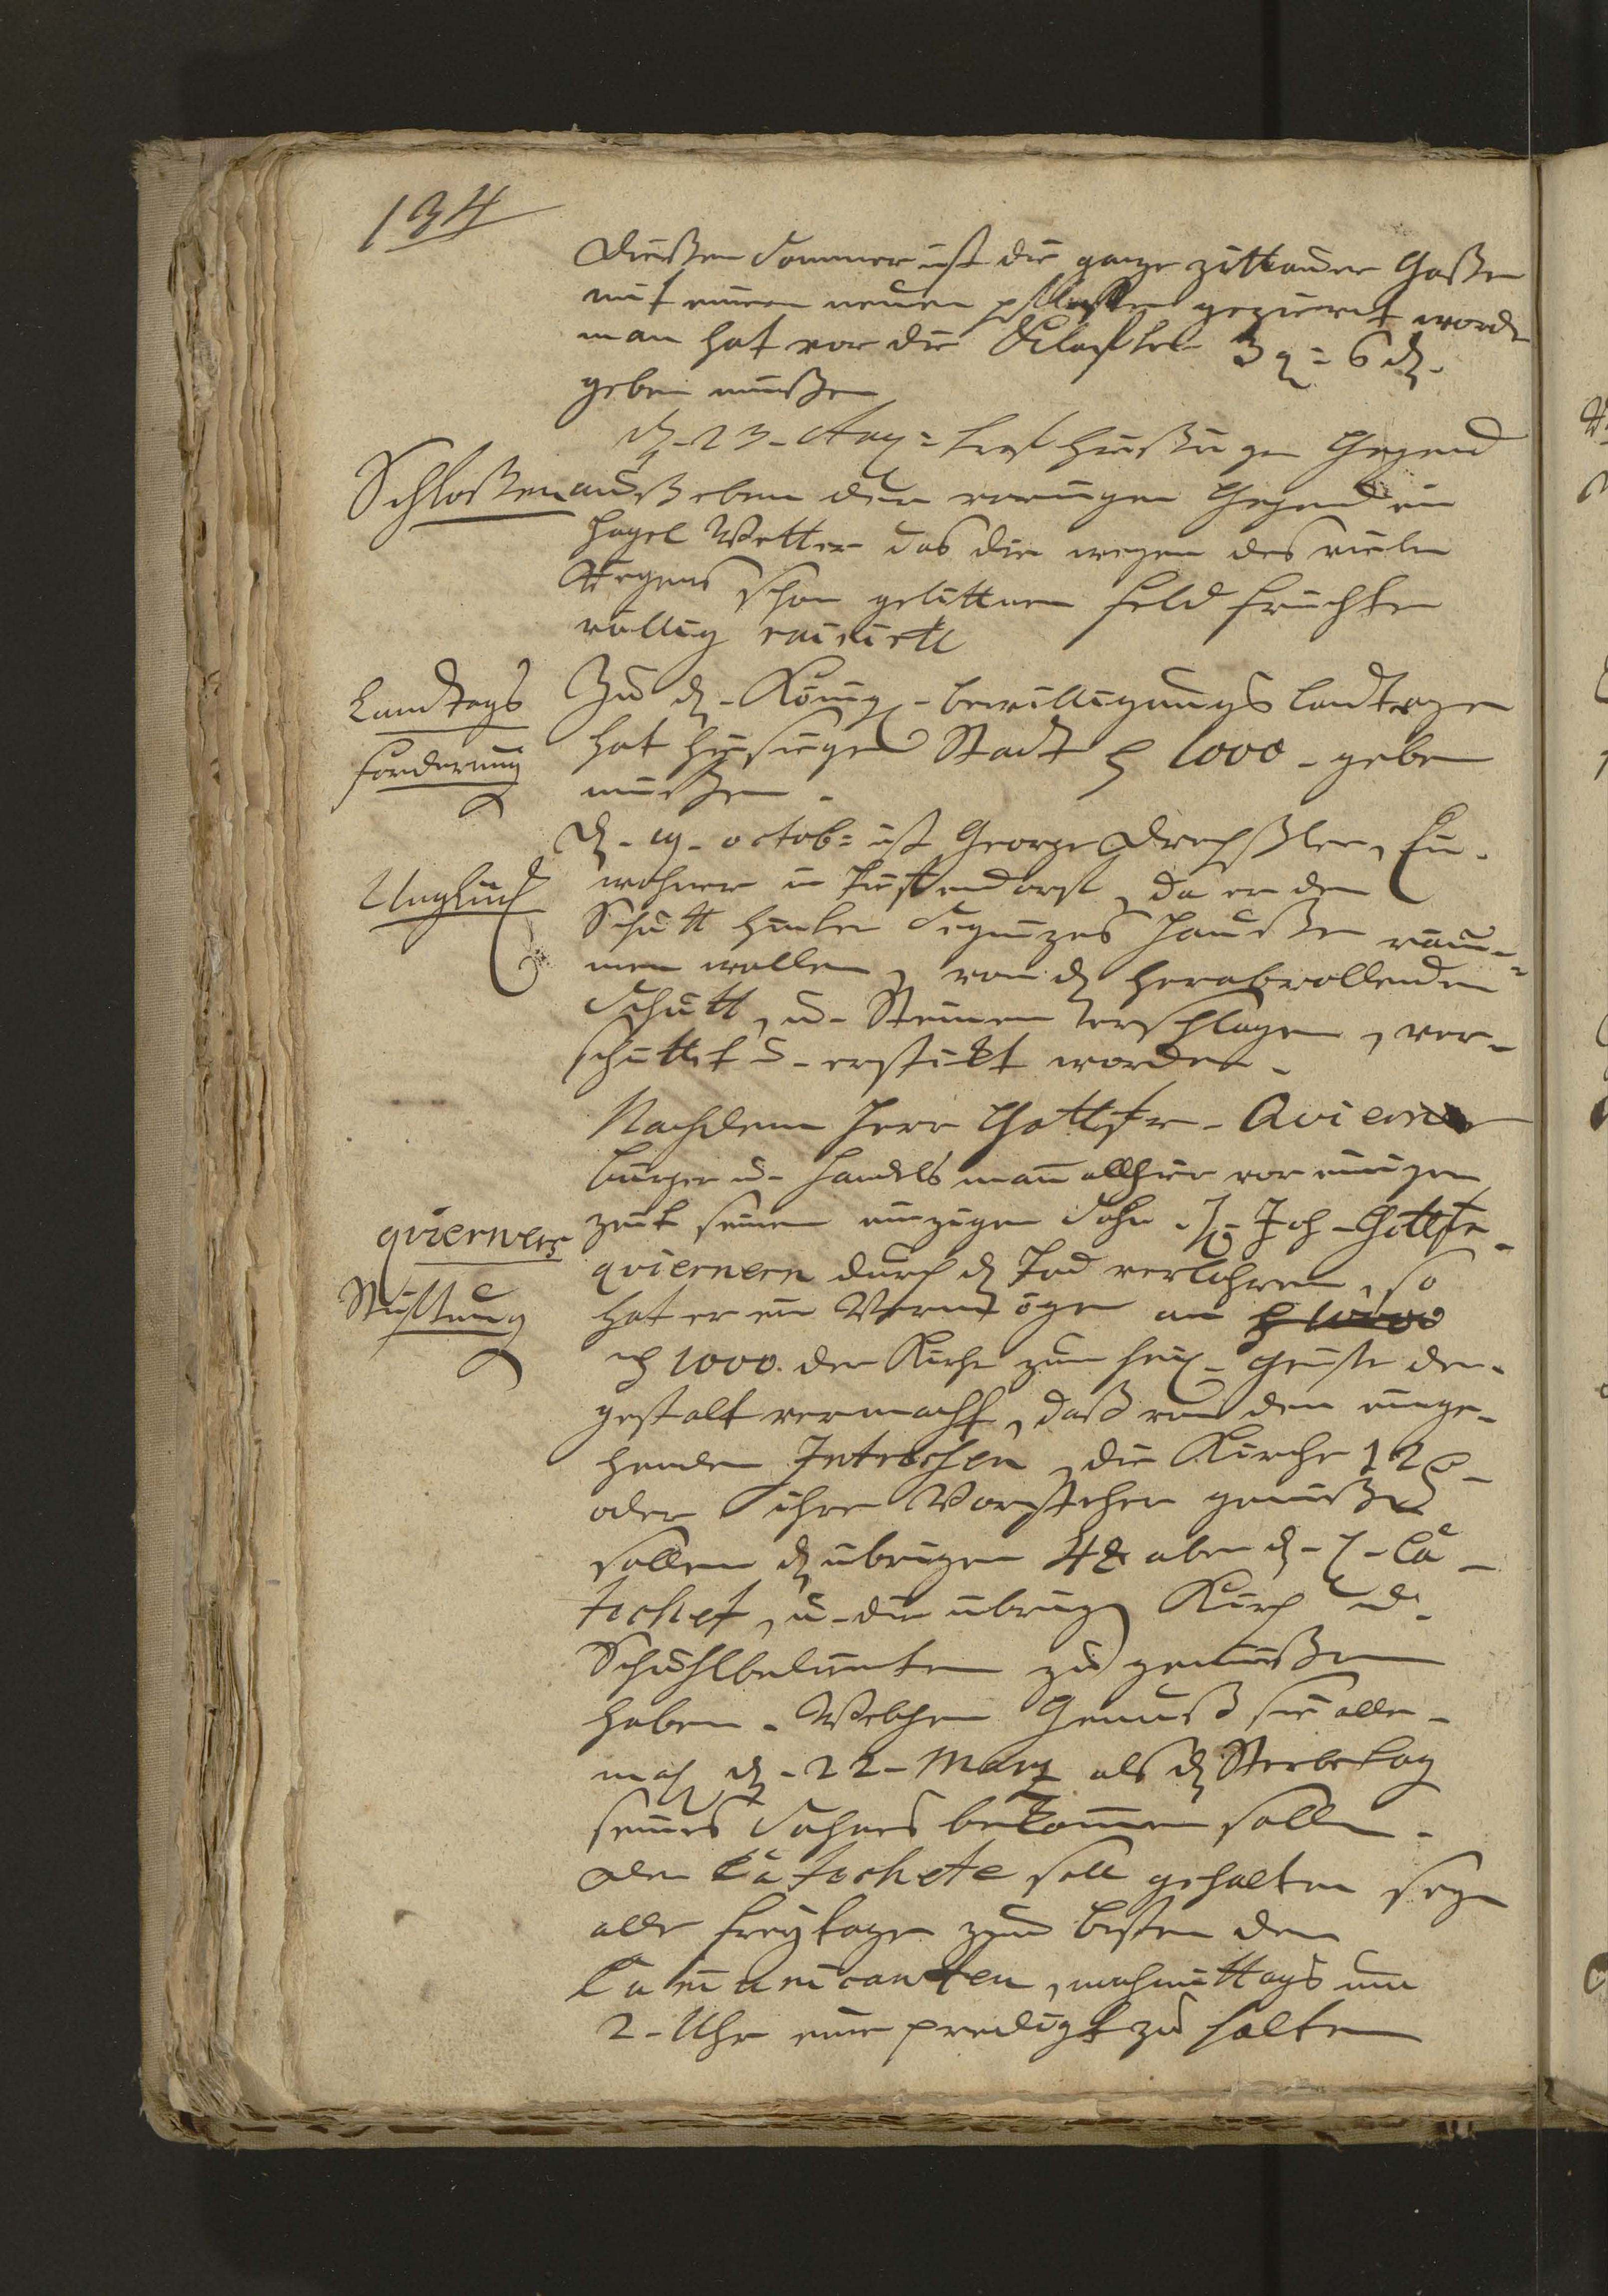 134
Dießen Sommer ist die ganze zittauer Gaßen
mit einem neuen pflaster gezieret word
man hat vor die Klafter 3 g = 6 d.
geben müßen
d. 23. Aug = traf hießige Gegend
Schloßen
auß eben der vorigen Gegend ein
Hagel Wetter das die wegen des vielen
Regens schon gelittnen feld früchten
völlig ruinirte
Landtags
forderung
Zu d. König. bewilligungs landtage
hat hiesige Stadt 1000 geben
müßen.
d. 19. octob = ist George Drechßler, Ein-
Unglück
wohner in , da er den
Schutt hinter Haußer räu-
men wollen, von d herabrollenden
Schutt, u. Steinen erschlagen, ver-
schüttet u. erstikt worden.
Nachdem Herr Gottfr. Qvierner
bürger u. Handelsman allhier vor einiger
qvierners
Stifftung
zeit seinen einzigen Sohn H. Joh. Gottfr.
qviernern durch d Tod verlohren, so
hat er ein Vermögen an
1000. der Kirche zum heil. Geiste der-
gestalt vermacht, daß von den einge-
henden Intreßen, die Kirche 12
oder ihre Vorsteher genießen
sollen d übrigen 48 aber d.
techet, u. die übrige Kirch u.
Schuhlbedienten zu genießen
haben. Welchen Genuß sie alle-
mal d. 22. Marz als d Sterbetag
seines Sohnes bekomen sollen.
Der Catechete soll gehalten seyn
alle freytage zum besten der
Comunicanten, nachmittags um
2. Uhr eine predigt zu halten